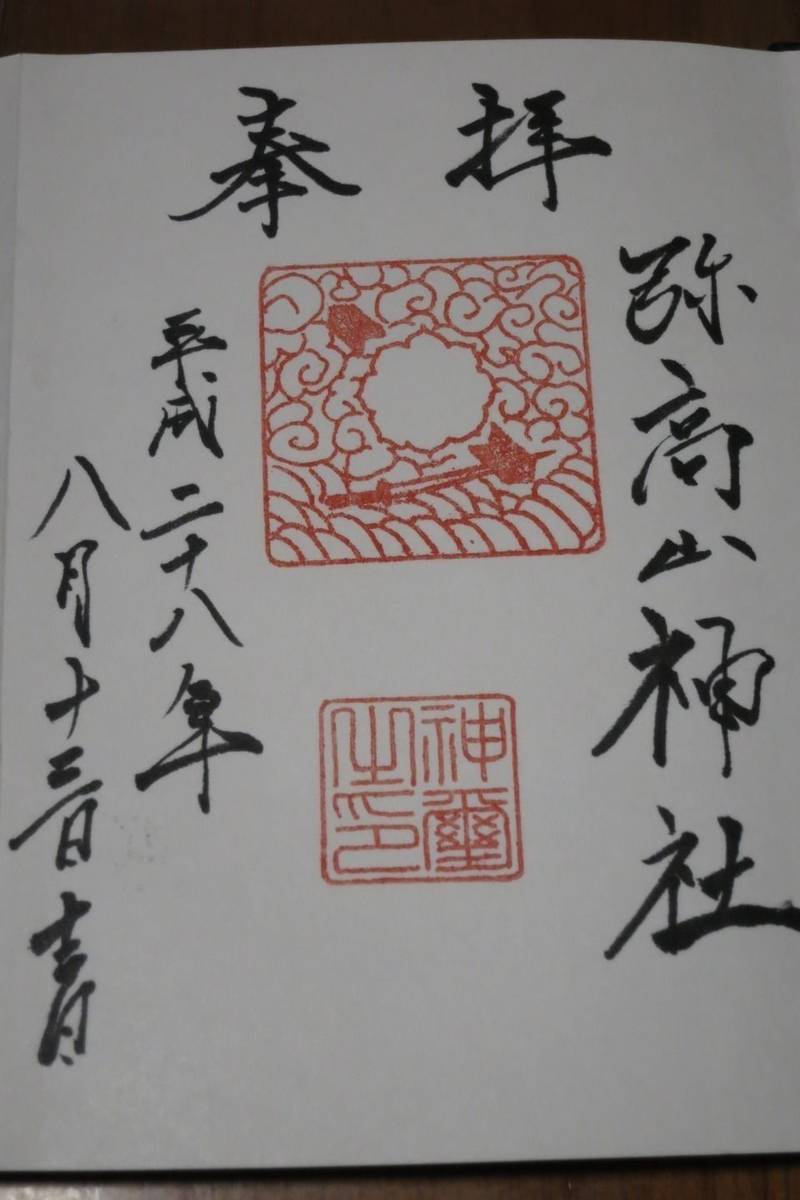 奉拝
弥高山神社
神璽之印
平成二十八年
八月十三日